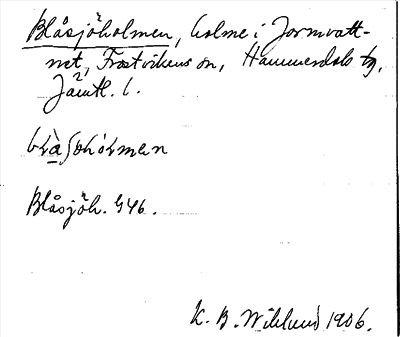 Blåsjöholmen, holme i Jormvatt-
net, Frostvikens sn, Hammerdals tg,
Jämtl. l.
Blåsjöh. G46.
K. B. Wiklund 1906.